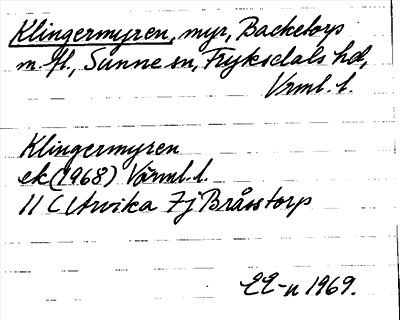 Klingermyren, myr, Backetorp
m. fl., Sunne sn, Fryksdals hd,
Vrml. l.
Klingermyren
ek (1968) Värml. l.
11 C Arvika 7j Bråsstorp
EE-n 1969.